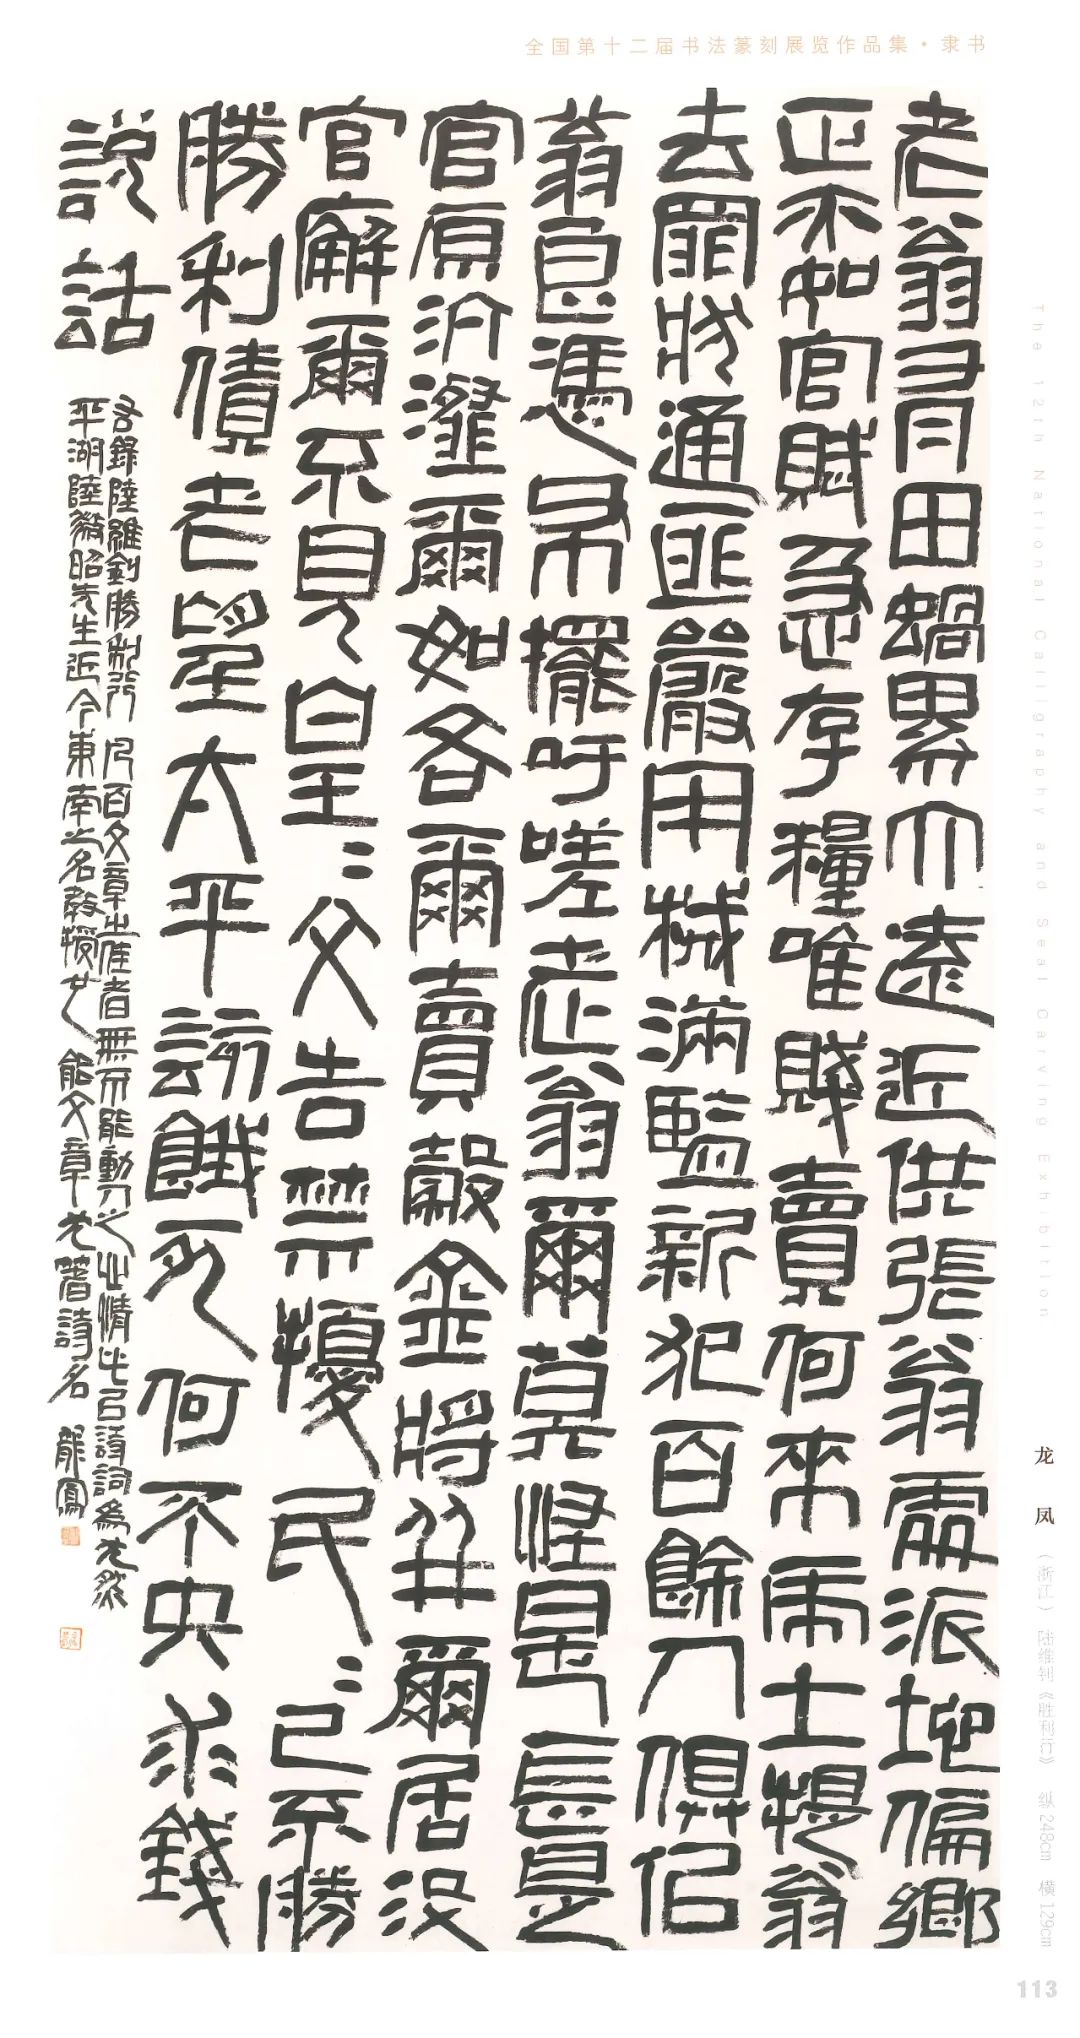 全国第十二届书法篆刻展览作品集・隶书
老翁有田蝸累遠近供張翁需派地偏鄉
正如官賦急存糧唯賤賣何來虎士翁
去罪狀通匪嚴用械滿監新犯百餘人俱
翁憑擺吁嗟走翁爾莫怪是長
官原爾如各爾賣穀金將並爾居没
官廨爾不見皇〻文告禁擾民〻已不勝
勝利債老望太平餓死何不央求錢
說話
右錄陸維釗勝利行 凡百文章之佳者無不能動人之心情也詩詞為尤然
平湖陸微昭先生近今東南之名教授也能文章尤著詩名 龍鳳
The 12th National Calligraphy and Seal Carving Exhibition
龙 凤 （浙江） 陆维钊《胜利行》 纵248cm 横129cm
113